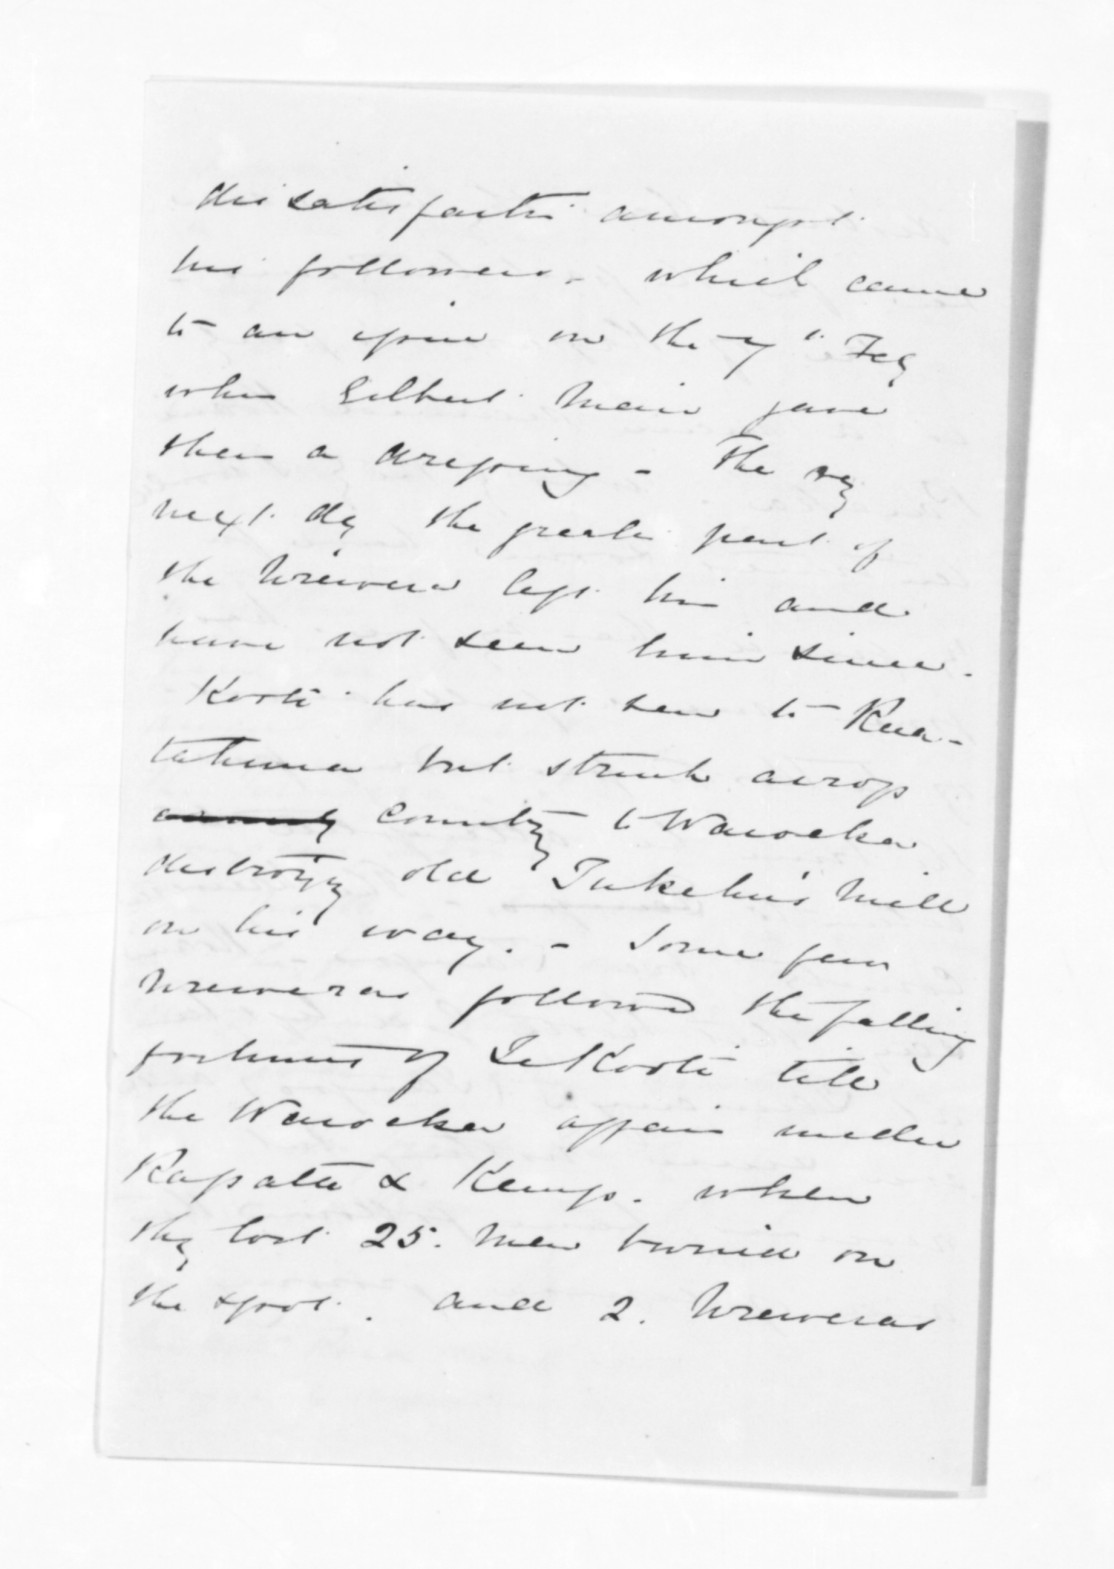 dissatisfaction amongst
his followers, which came
to an issue on the 7th Feby
when Gilbert Mair gave
them a dressing - The very
next day the greater part of
the Urewera left him and
have not seen him since.
Kooti has not been to Rua-
tahuna but struck across
country to Waioeka
destroying old Tukehu's Mill
on his way. - Some few
Ureweras followed the falling
fortunes of Te Kooti till
the Waioeka affair under
Ropata & Kemp. when
they lost 25. Men buried on
the spot. and 2. Ureweras